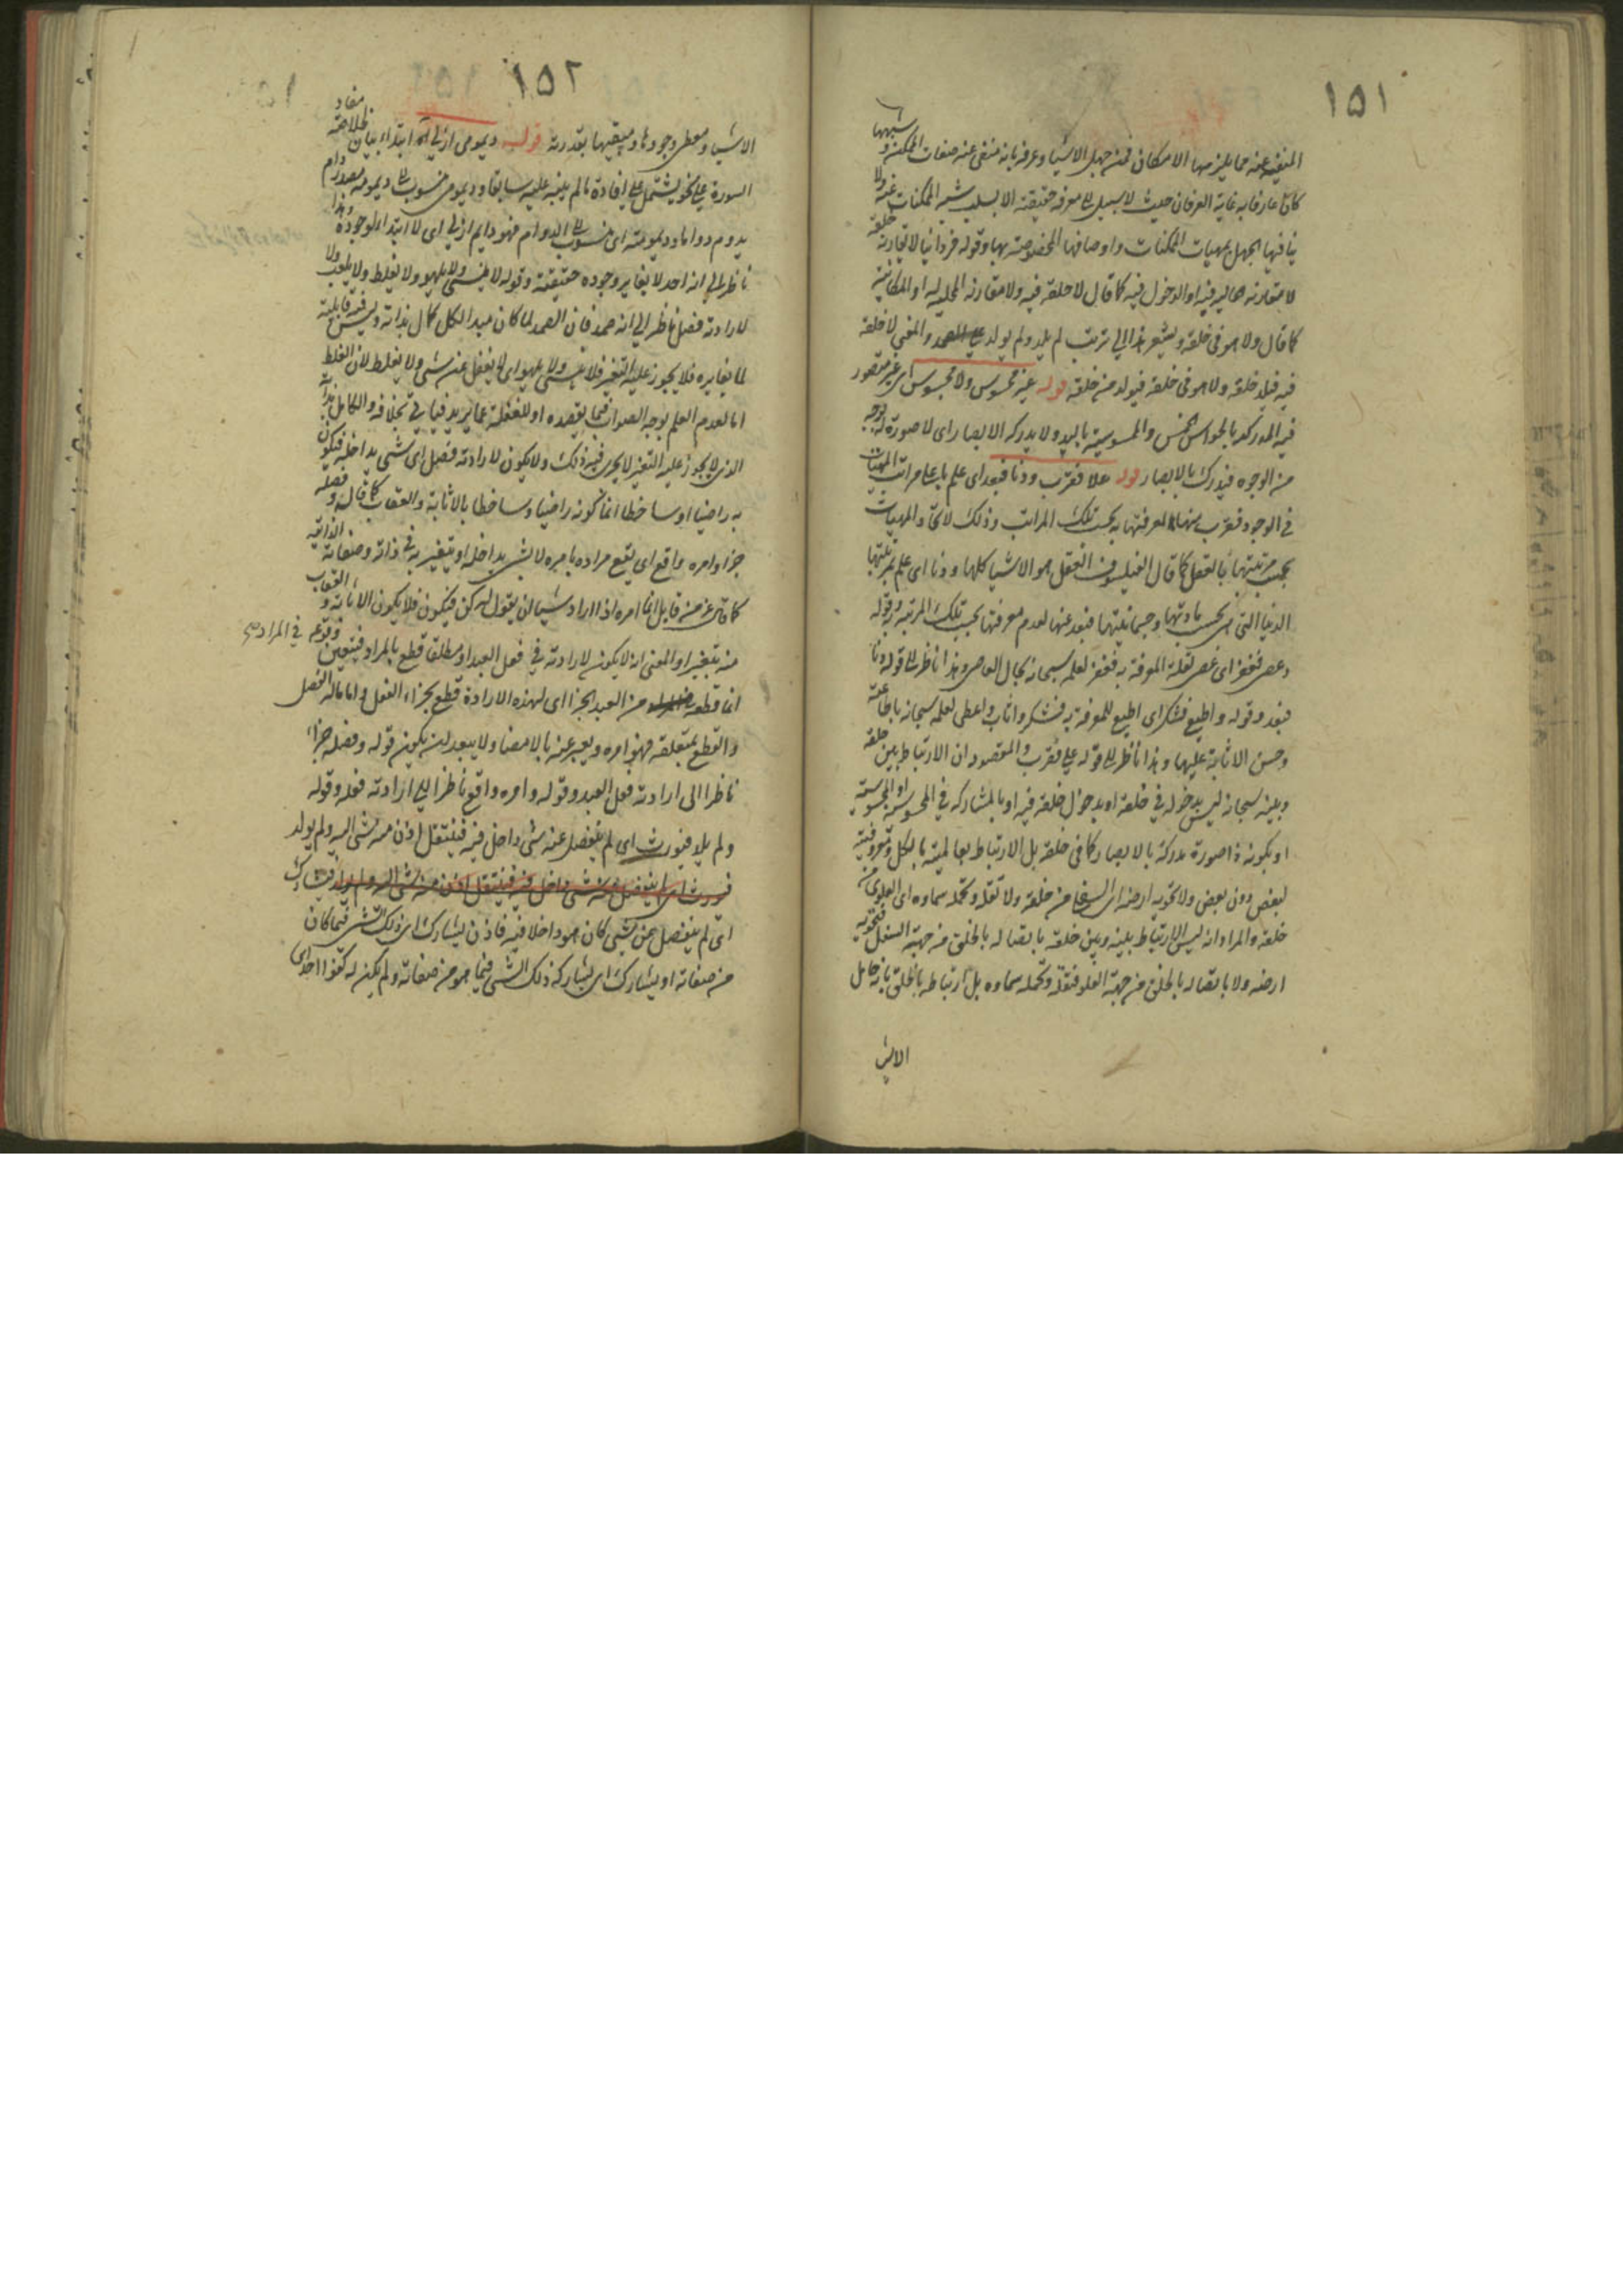 ١٥١
المنفية عنه مما يلزمها الامكان فمن جهل الاشيا وعرفه بانه منفى عنه صفات الممكن وشبهها
كان عارفا به غاية العرفان حيث لا سبيل الى معرفة حقيقته الا بسلب شبه الممكنات عنه ولا
ينافيها الجهل بمهيات الممكنات واوصافها المخصوصة بها وقوله فردانيا لا
لا مقارنة الحالية فيه او الدخول فيه كما قال لا خلقه فيه ولا مقارنة المحلية له او المكانية
كما قال ولا هو فى خلقه ويشعر بذا الى ترتب لم يلد ولم يولد والمعنى لا خلقه
فيه فيلد خلقه ولا هو فى خلقه فيولد من خلقه قوله غير محسوس ولا مجسوس اى غير متصور
فيه المدركية بالحواس الخمس والملموسية باليد ولا يدركه الابصار اى لا صورة له بوجه
من الوجوه فيدرك بالابصار قوله علا فقرب ودنا فبعد اى علم باعلى مراتب المهيات
فى الوجود فقرب منها لمعرفتها به بحسب تلك المراتب وذلك
بحسب مرتبتها بالعقل كما قال الفيلسوف العقل هو الاشيا كلها ودنا اى علم بمرتبتها
الدنيا التى هى بحسب مادتها وجسمانيتها فبعد عنها لعدم معرفتها بحسب تلك المرتبة وقوله
وعصى فغفر اى عصى لقلة المعرفة به فغفر لعلمه سبحانه بحال العاصى وهذا ناظر الى قوله ودنا
فبعد وقوله واطيع فشكر اى اطيع للمعرفة به فشكر واثاب واعطى لعلمه سبحانه باطاعته
وحسن الاثابة عليها وهذا ناظر الى قوله علا فقرب والمقصود ان الارتباط بين خلقه
وبينه سبحانه ليس بدخوله فى خلقه او بدخول خلقه فيه او بالمشاركة فى المحسوسية او المجسوسية
او بكونه ذا صورة مدركة بالابصار كما فى خلقه بل الارتباط بعالميته بالكل ومعروفيته
لبعض دون بعض ولا تحويه ارضه اى السفلى من خلقه ولا تقله وتحمله سماوه اى العلوى من
خلقه والمراد انه ليس الارتباط بينه وبين خلقه باتصاله بالخلق من جهة السفل فتحويه
ارضه ولا باتصاله بالخلق من جهة العلو فتقله وتحمله سماوه بل ارتباطه بالخلق بانه حامل
الاشيا
١٥٢
الاشيا ومعطى وجودها ومبقيها بقدرته قوله ديمومى ازلى اه ابتداء بيان مفاد
السورة على نحو يشتمل على افادة ما لم ينبه عليه سابقا وديمومى منسوب الى ديمومة مصدر دام
يدوم دواما وديمومة اى منسوب الى الدوام فهو دايم ازلى اى لا ابتداء لوجوده وهذا
ناظر الى انه احد لا يغاير وجوده حقيقته وقوله لا ينسى ولا يلهو ولا يغلط ولا يلعب ولا
لارادته فصل ناظر الى انه صمد فان الصمد لما كان مبدا لكل كمال بذاته وليس فيه قابلية
لما يغايره فلا يجوز عليه التغير فلا ينسى ولا يلهو اى لا يغفل عن شى ولا يغلط لان الغلط
اما لعدم العلم بوجه الصواب فيما يقصده او للغفلة عما يريد فياتى بخلافه والكامل بذاته
الذى لا يجوز عليه التغير لا يجرى فيه ذلك ولا يكون لارادته فصل اى شى يداخله فيكون
به راضيا او ساخطا انما كونه راضيا وساخطا بالاثابة والعقاب كما قال وفصله
جزا وامره واقع اى يقع مراده بامره لا بشى يداخله او يتغير به فى ذاته وصفاته الذاتية
كما قال عز من قايل انما امره اذا اراد شيئا ان يقول له كن فيكون فلا يكون الاثابة والعقاب
منه بتغير او المعنى انه لا يكون لارادته فى فعل العبد او مطلقا قطع بالمراد فيتعين وقوعه فى المراد
انما قطعه من العبد الجزا اى لهذه الارادة قطع بجزاء الفعل واما ماله الفصل
والقطع بمتعلقه فهو امره ويعبر عنه بالامضا ولا يبعد ان يكون قوله وفصله جزاء
ناظرا الى ارادته فعل العبد وقوله وامره واقع ناظرا الى ارادته فعله وقوله
ولم يلد فيورث اى لم ينفصل عنه شى داخل فيه فينتقل اذن منه شى اليه ولم يولد
فيورث اى لم ينفصل عنه شى داخل فيه فينتقل اذن منه شى اليه ولم يولد فيشارك
اى لم ينفصل عن شى كان هو داخلا فيه فاذن يشارك اى ذلك الشى فيما كان
من صفاته او يشارك اى يشاركه ذلك الشى فيما هو من صفاته ولم يكن له كفوا احد اى